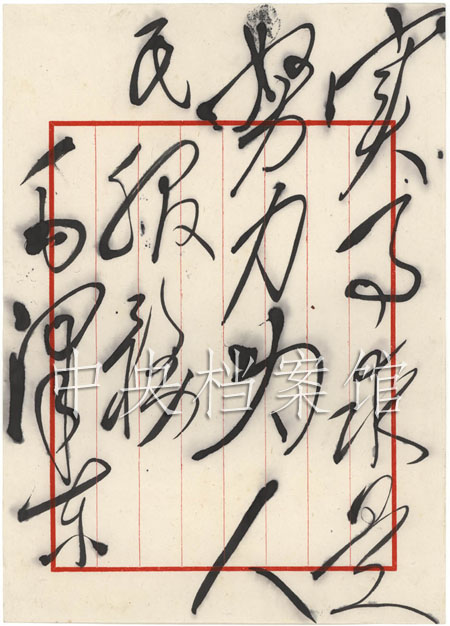 实事求是
努力为人
民服務
毛泽东
中央档案馆